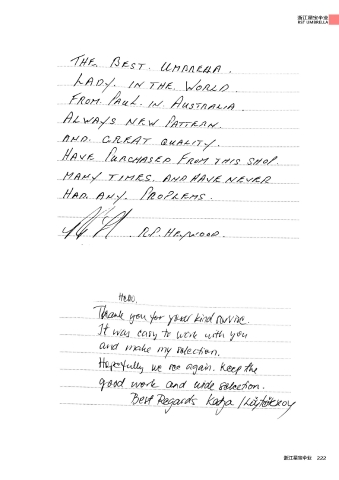 浙江星宝伞业
RST UMBRELLA
THE BEST. UMBRELLA.
LADY. IN THE WORLD.
FROM. PAUL. IN AUSTRALIA.
ALWAYS NEW PATTERN.
AND. GREAT QUALITY.
HAVE PURCHASED FROM THIS SHOP.
MANY TIMES. AND HAVE NEVER
HAD. ANY. PROPLEMS.
R.P. HEYWOOD.
Hello,
Thank you for your kind survise.
It was easy to work with you
and make my selection.
Hopefully we see again. Keep the
good work and wide selection.
Best Regards Katja
浙江星宝伞业 222